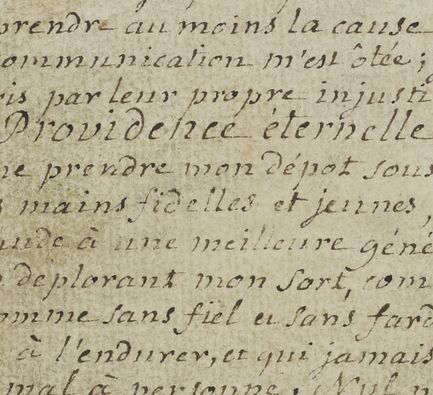 prendre au moins la cause
ommunication m'est ôtée;
ris par leur propre injusti
Providence éternelle
ne prendre mon dépot sous
s mains fidelles et jeunes,
ande à une meilleure géné
deplorant mon sort, com
omme sans fiel et sans fard
à l'endurer, et qui jamais
mal à personne. Nul n